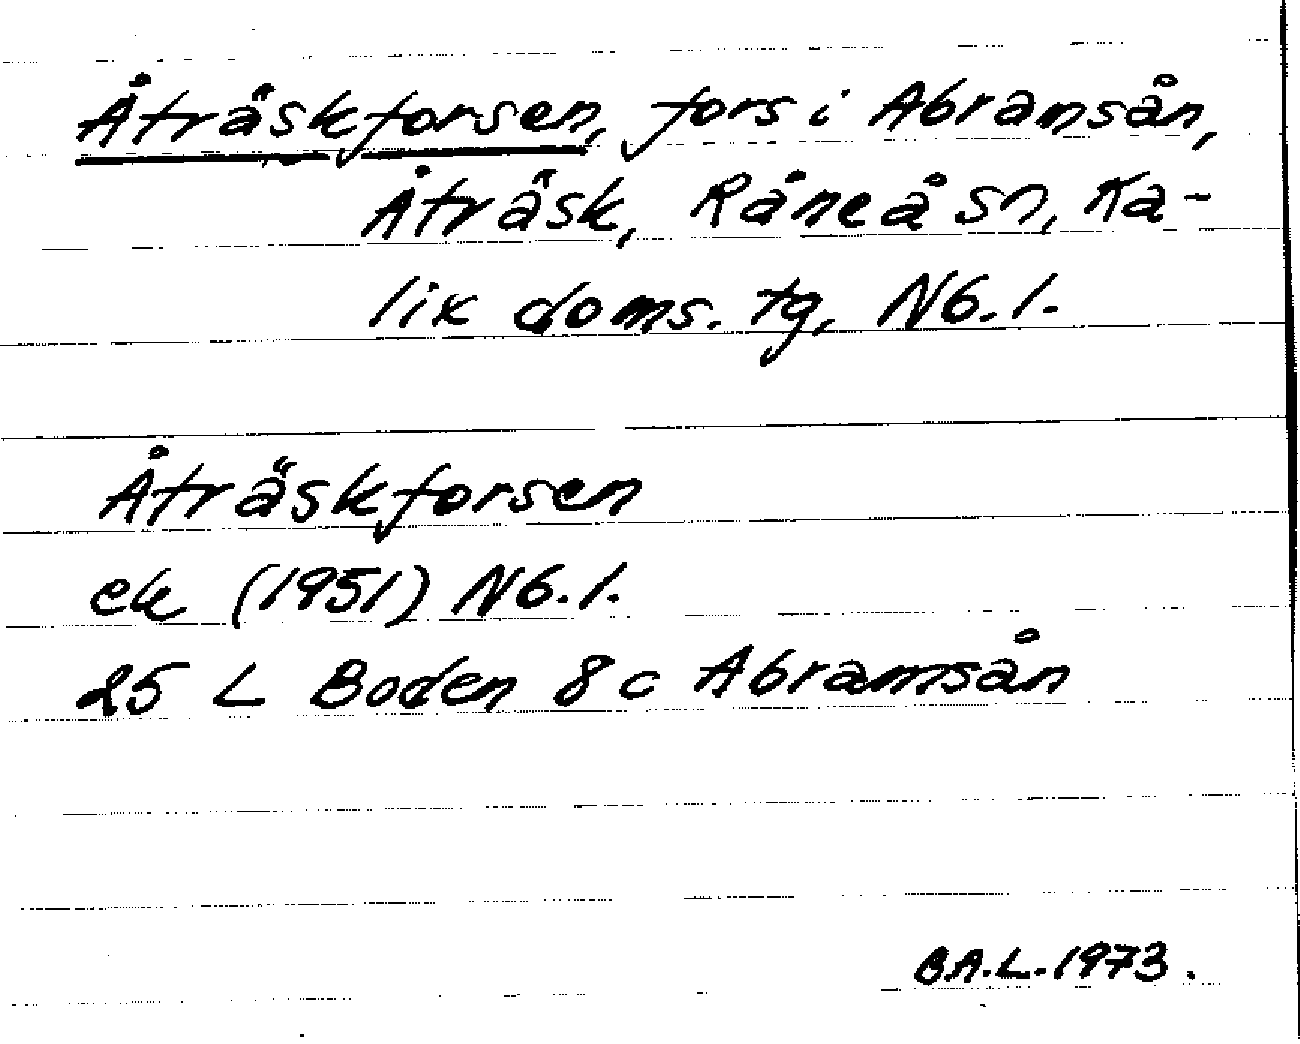 Åträskforsen, fors i Abramsån,
Åträsk, Råneå sn, Ka-
lix doms. tg, Nb. l.
Åträskforsen
ek (1951) Nb. l.
25 L Boden 8 c Abramsån
B.A.L. 1973.